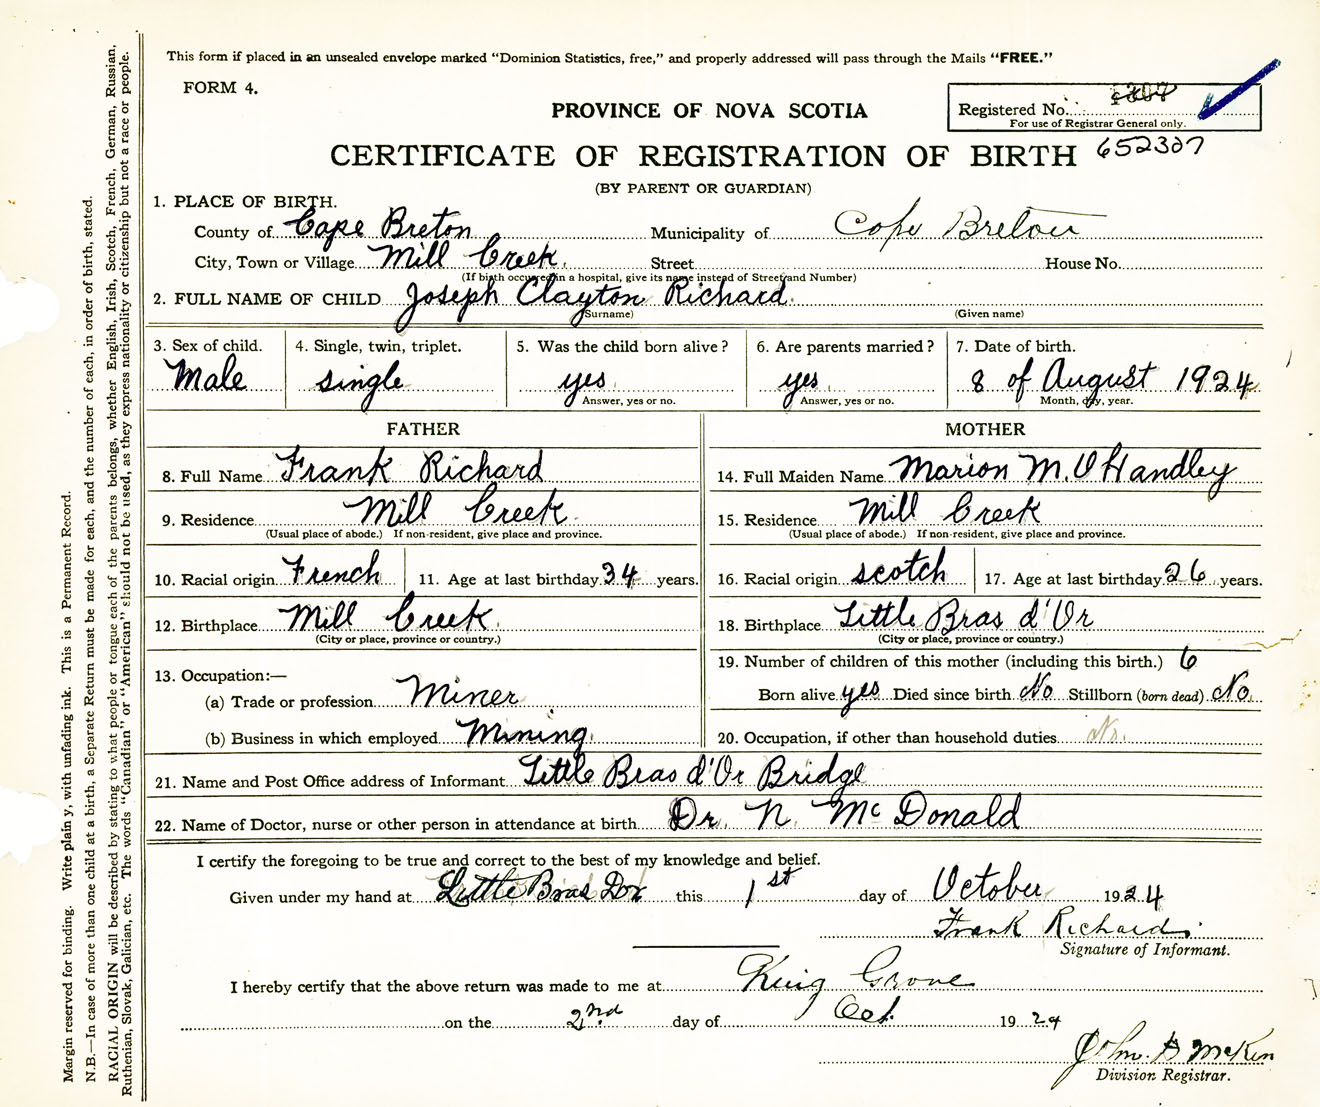 This form if placed in an unsealed envelope marked "Dominion Statistics, free," and properly addressed will pass through the Mails "FREE."
FORM 4.
PROVINCE OF NOVA SCOTIA
Registered No.
For use of Registrar General only.
CERTIFICATE OF REGISTRATION OF BIRTH 652307
(BY PARENT OR GUARDIAN)
1. PLACE OF BIRTH.
County of Cape Breton Municipality of Cape Breton
City, Town or Village Mill Creek. Street House No.
(If birth occurred in a hospital, give its name instead of Street and Number)
2. FULL NAME OF CHILD Joseph Clayton Richard
(Surname) (Given name)
3. Sex of child. 4. Single, twin, triplet. 5. Was the child born alive? 6. Are parents married? 7. Date of birth.
Male single yes yes 8 of August 1924
Answer, yes or no. Answer, yes or no. Month, day, year.
FATHER MOTHER
8. Full Name Frank Richard 14. Full Maiden Name Marion M. O Handley
9. Residence Mill Creek. 15. Residence Mill Creek
(Usual place of abode.) If non-resident, give place and province. (Usual place of abode.) If non-resident, give place and province.
10. Racial origin French 11. Age at last birthday 34 years. 16. Racial origin scotch 17. Age at last birthday 26 years.
12. Birthplace Mill Creek. 18. Birthplace Little Bras d'Or
(City or place, province or country.) (City or place, province or country.)
13. Occupation:— 19. Number of children of this mother (including this birth.) 6
(a) Trade or profession Miner Born alive yes Died since birth No Stillborn (born dead) No
(b) Business in which employed Mining. 20. Occupation, if other than household duties No.
21. Name and Post Office address of Informant Little Bras d'Or Bridge
22. Name of Doctor, nurse or other person in attendance at birth Dr. N. McDonald
I certify the foregoing to be true and correct to the best of my knowledge and belief.
Given under my hand at Little Bras Dor this 1st day of October 1924
Frank Richard
Signature of Informant.
I hereby certify that the above return was made to me at Grove
on the 2nd day of Oct. 1924
John
Division Registrar.
Margin reserved for binding. Write plainly, with unfading ink. This is a Permanent Record.
N.B.—In case of more than one child at a birth, a Separate Return must be made for each, and the number of each, in order of birth, stated.
RACIAL ORIGIN will be described by stating to what people or tongue each of the parents belongs, whether English, Irish, Scotch, French, German, Russian,
Ruthenian, Slovak, Galician, etc. The words "Canadian" or "American" should not be used, as they express nationality or citizenship but not a race or people.